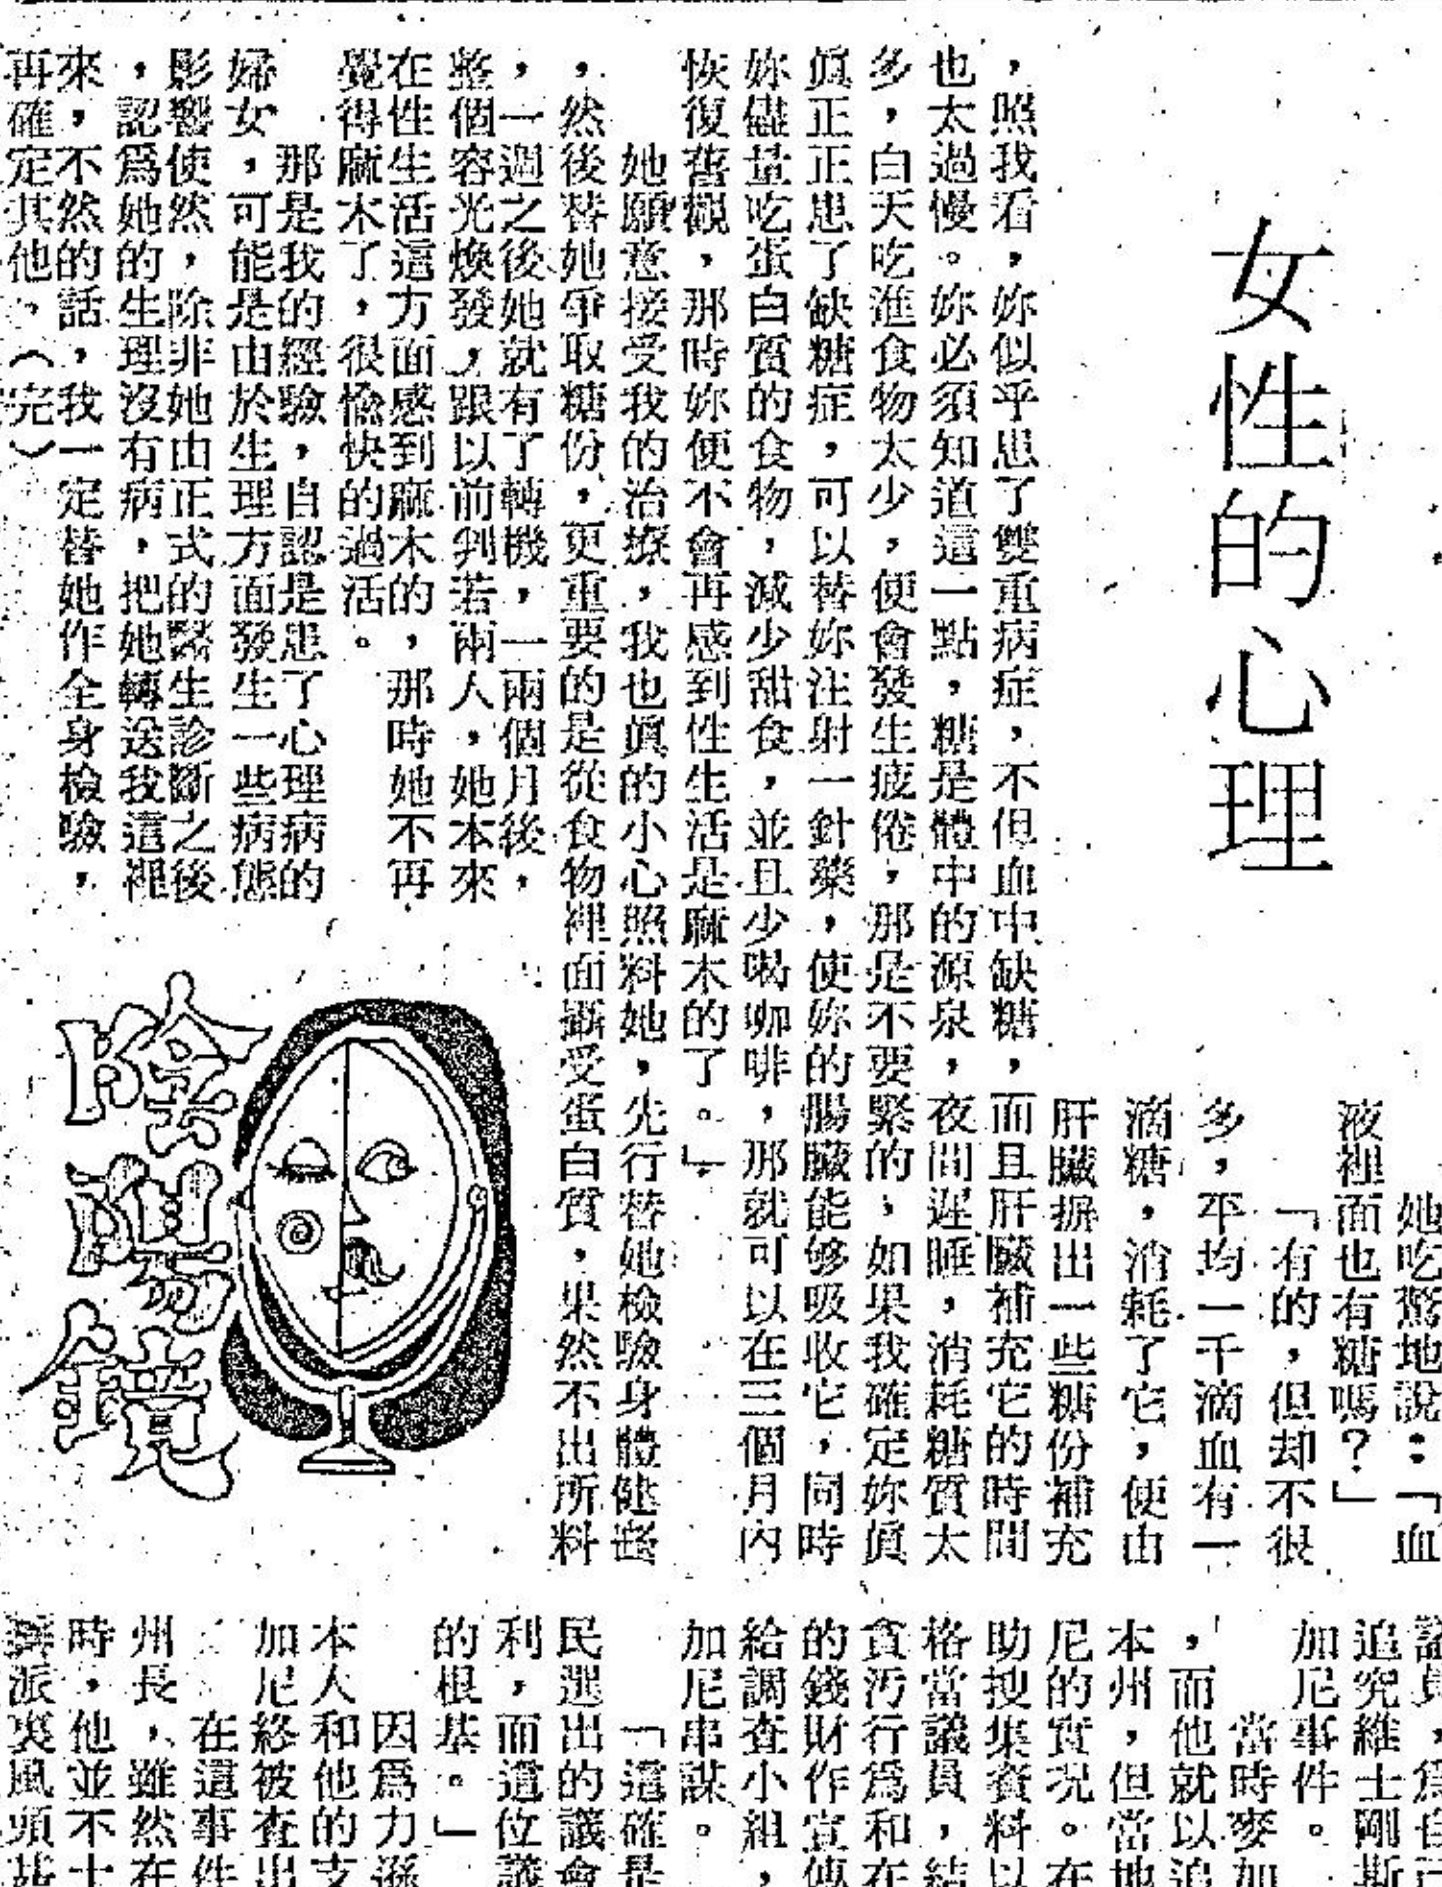 女性的心理
她吃驚地說：「血
液裡面也有糖嗎？」
「有的，但却不很
多，平均一千滴血有一
滴糖，消耗了它，便由
肝臟摒出一些糖份補充
，照我看，妳似乎患了雙重病症，不但血中缺糖，而且肝臟補充它的時間
也太過慢。妳必須知道這一點，糖是體中的源泉，夜間遲睡，消耗糖質太
多，白天吃進食物太少，便會發生疲倦，那是不要緊的，如果我確定妳眞
眞正正患了缺糖症，可以替妳注射一針藥，使妳的腸臟能够吸收它，同時
妳儘量吃蛋白質的食物，減少甜食，並且少喝咖啡，那就可以在三個月內
恢復舊觀，那時妳便不會再感到性生活是麻木的了。」
她願意接受我的治療，我也眞的小心照料她，先行替她檢驗身體健
，然後替她爭取糖份，更重要的是從食物裡面攝受蛋白質，果然不出所料
，一週之後她就有了轉機，一兩個月後，
整個容光煥發，跟以前判若兩人，她本來
在性生活這方面感到麻木的，那時她不再
覺得麻木了，很愉快的過活。
那是我的經驗，自認是患了心理病的
婦女，可能是由於生理方面發生一些病態
影響使然，除非她由正式的醫生診斷之後
，認爲她的生理沒有病，把她轉送我這裡
來，不然的話，我一定替她作全身檢驗，
再確定其他。（完）
陰陽鏡
議員，爲自己
追究維士剛斯
加尼事件。
當時麥加
，而他就以追
本州，但當地
尼的實況。在
助搜集資料以
格當議員，結
貪污行爲和在
的錢財作宣傳
給調查小組，
加尼串謀。
「這確是
民選出的議會
利，而這位議
的根基。」
因爲力遜
本人和他的支
加尼終被查出
在這事件
州長，雖然在
時，他並不十
派裏風頭